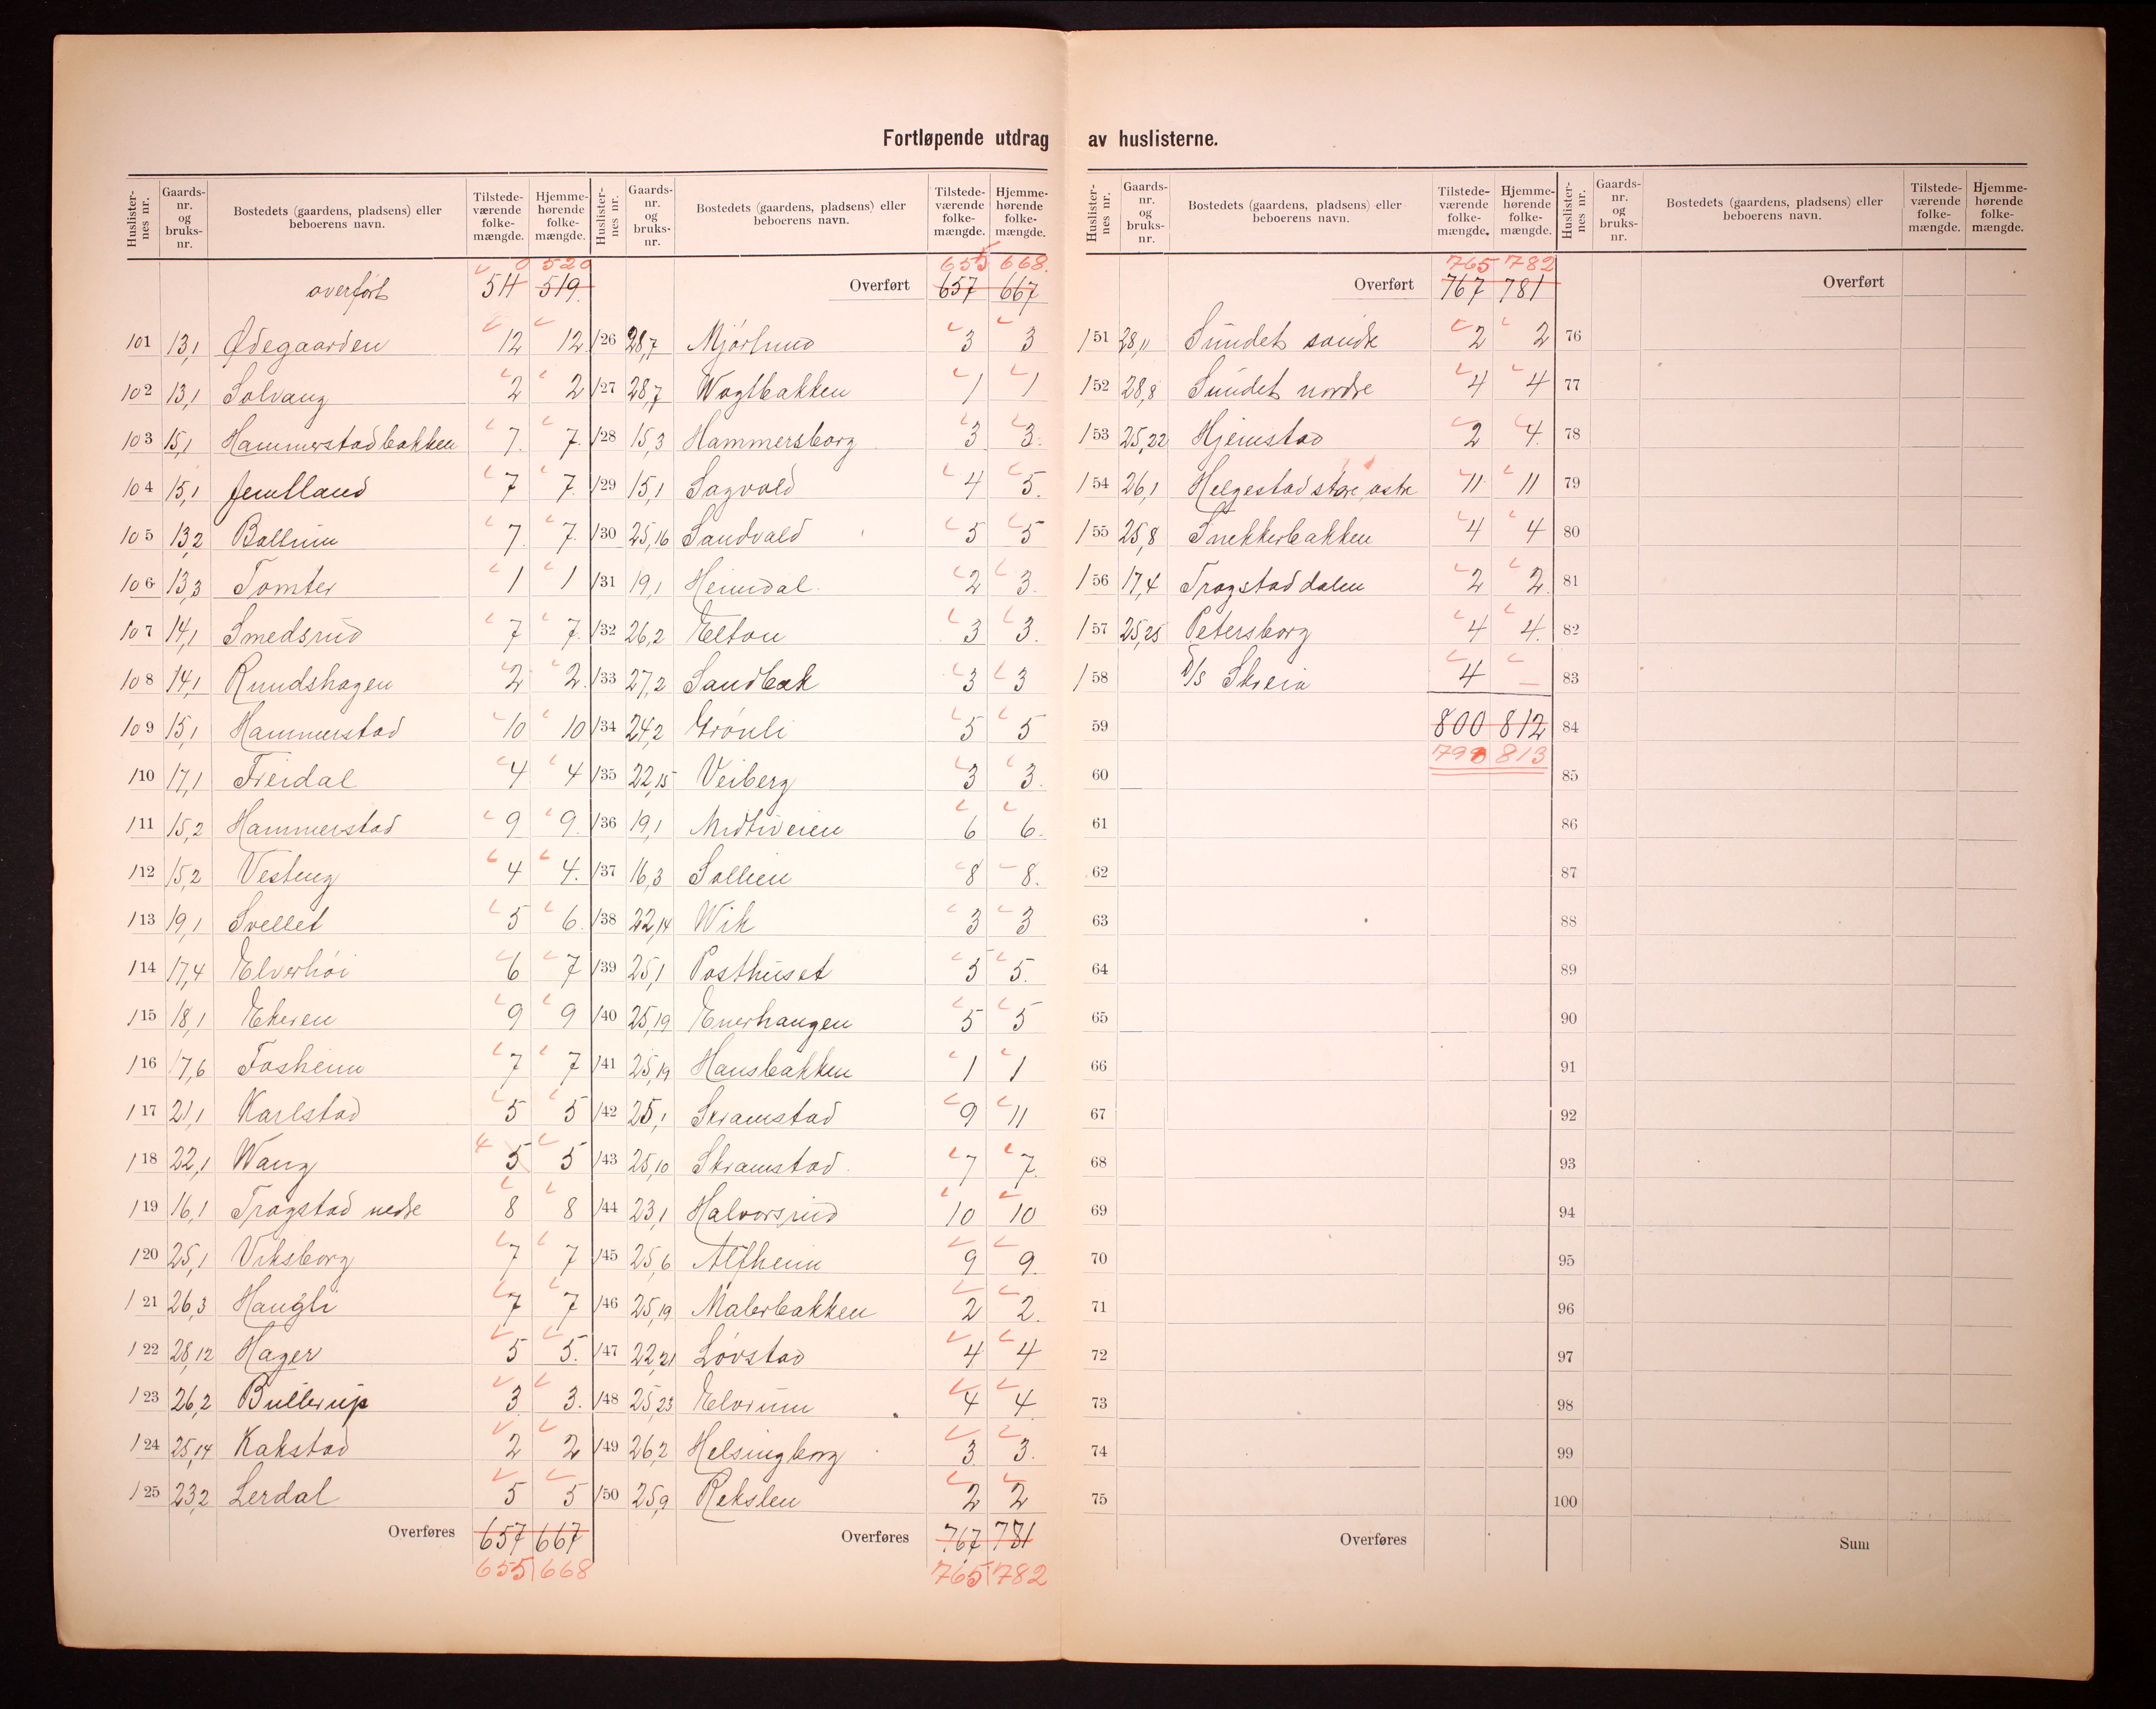 Fortløpende utdrag av huslisterne.
Huslisternes nr. Gaardsnr. og bruksnr. Bostedets (gaardens, pladsens) eller beboerens navn. Tilstedeværende folkemængde. Hjemmehørende folkemængde.
0 520
overført 511 519
101 13,1 Ødegaarden 12 12
102 13,1 Solvang 2 2
103 15,1 Hammerstadbakken 7 7
104 15,1 Jemtland 7 7
105 13,2 Ballum 7 7
106 13,3 Tomter 1 1
107 14,1 Smedsrud 7 7
108 14,1 Rundshagen 2 2
109 15,1 Hammerstad 10 10
110 17,1 Freidal 4 4
111 15,2 Hammerstad 9 9
112 15,2 Vesteng 4 4
113 19,1 Svellet 5 6
114 17,4 Elverhöi 6 7
115 18,1 Ekeren 9 9
116 17,6 Fosheim 7 7
117 21,1 Karlstad 5 5
118 22,1 Wang 4 5 5
119 16,1 Trogstad nedre 8 8
120 25,1 Viksborg 7 7
121 26,3 Haugli 7 7
122 28,12 Hager 5 5
123 26,2 Bullerup 3 3
124 25,14 Kakstad 2 2
125 23,2 Lerdal 5 5
Overføres 657 667
655 668
Huslisternes nr. Gaardsnr. og bruksnr. Bostedets (gaardens, pladsens) eller beboerens navn. Tilstedeværende folkemængde. Hjemmehørende folkemængde.
655 668
Overført 657 667
126 28,7 Mjörlund 3 3
127 28,7 Vogtbakken 1 1
128 15,3 Hammersborg 3 3
129 15,1 Sagvold 4 5
130 25,16 Sandvold 5 5
131 19,1 Heimdal 2 3
132 26,2 Elton 3 3
133 27,2 Sandbak 3 3
134 24,2 Grönli 5 5
135 22,15 Veiberg 3 3
136 19,1 Midtiveien 6 6
137 16,3 Sollien 8 8
138 22,14 Wik 3 3
139 25,1 Posthuset 5 5
140 25,19 Enerhaugen 5 5
141 25,19 Hansbakken 1 1
142 25,1 Skramstad 9 11
143 25,10 Skramstad 7 7
144 23,1 Halvorsrud 10 10
145 25,6 Alfheim 9 9
146 25,19 Malerbakken 2 2
147 22,21 Lövstad 4 4
148 25,23 Elvrum 4 4
149 26,2 Helsingborg 3 3
150 25,9 Rekslen 2 2
Overføres 767 781
765 782
Huslisternes nr. Gaardsnr. og bruksnr. Bostedets (gaardens, pladsens) eller beboerens navn. Tilstedeværende folkemængde. Hjemmehørende folkemængde.
765 782
Overført 767 781
151 28,11 Sundet söndre 2 2
152 28,8 Sundet nordre 4 4
153 25,22 Hjemstad 2 4
154 26,1 Helgestad store östre 11 11
155 25,8 Snekkerbakken 4 4
156 17,4 Trogstaddalen 2 2
157 25,25 Petersborg 4 4
158 D/S Skreia 4 —
59 800 812
798 813
60
61
62
63
64
65
66
67
68
69
70
71
72
73
74
75
Overføres
Huslisternes nr. Gaardsnr. og bruksnr. Bostedets (gaardens, pladsens) eller beboerens navn. Tilstedeværende folkemængde. Hjemmehørende folkemængde.
Overført
76
77
78
79
80
81
82
83
84
85
86
87
88
89
90
91
92
93
94
95
96
97
98
99
100
Sum